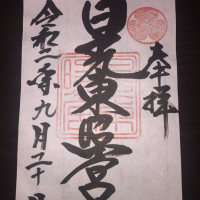 奉拝
日光東照宮
令和二年九月二十日